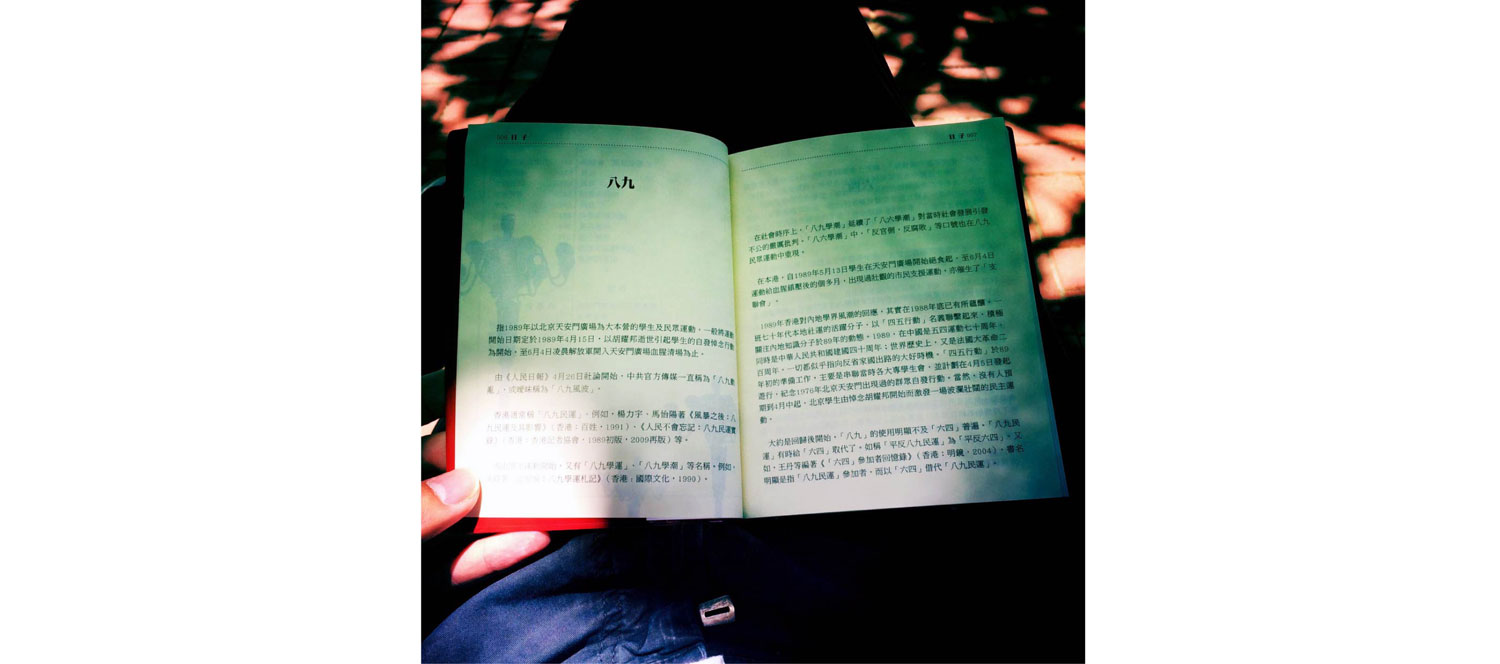 八九
指1989年以北京天安門廣場為大本營的學生及民眾運動,一般將運動
開始日期定於1989年4月15日,以胡耀邦逝世引起學生的自發悼念行動
為開始,至6月4日凌晨解放軍開入天安門廣場血腥清場為止。
由《人民日報》4月26日社論開始,中共官方傳媒一直稱為「八九動
亂」,或曖昧稱為「八九風波」。
香港通常稱「八九民運」,例如,楊力宇、馬怡陽著《風暴之後:八
九民運及其影響》(香港:百姓,1991)、《人民不會忘記:八九民運實
錄》(香港:香港記者協會,1989初版,2009再版)等。
又有「八九學運」、「八九學潮」等名稱。例如,
八九學運札記》(香港:國際文化,1990)。
在社會時序上,「八九學潮」延續了「八六學潮」對當時社會發展引發
不公的嚴厲批判。「八六學潮」中,「反官倒、反腐敗」等口號也在八九
民眾運動中重現。
在本港,自1989年5月13日學生在天安門廣場開始絕食起,至6月4日
運動給血腥鎮壓後的個多月,出現過壯觀的市民支援運動,亦催生了「支
聯會」。
1989年香港對內地學界風潮的回應,其實在1988年底已有所醞釀。一
班七十年代本地社運的活躍分子,以「四五行動」名義聯繫起來,積極
關注內地知識分子於89年的動態。1989,在中國是五四運動七十周年,
同時是中華人民共和國建國四十周年;世界歷史上,又是法國大革命二
百周年,一切都似乎指向反省家國出路的大好時機。「四五行動」於89
年初的準備工作,主要是串聯當時各大專學生會,並計劃在4月5日發起
遊行,紀念1976年北京天安門出現過的群眾自發行動。當然,沒有人預
期到4月中起,北京學生由悼念胡耀邦開始而激發一場波瀾壯闊的民主運
動。
大約是回歸後開始,「八九」的使用明顯不及「六四」普遍。「八九民
運」有時給「六四」取代了。如稱「平反八九民運」為「平反六四」。又
如,王丹等編著《「六四」參加者回憶錄》(香港:明鏡,2004),書名
明顯是指「八九民運」參加者,而以「六四」借代「八九民運」。